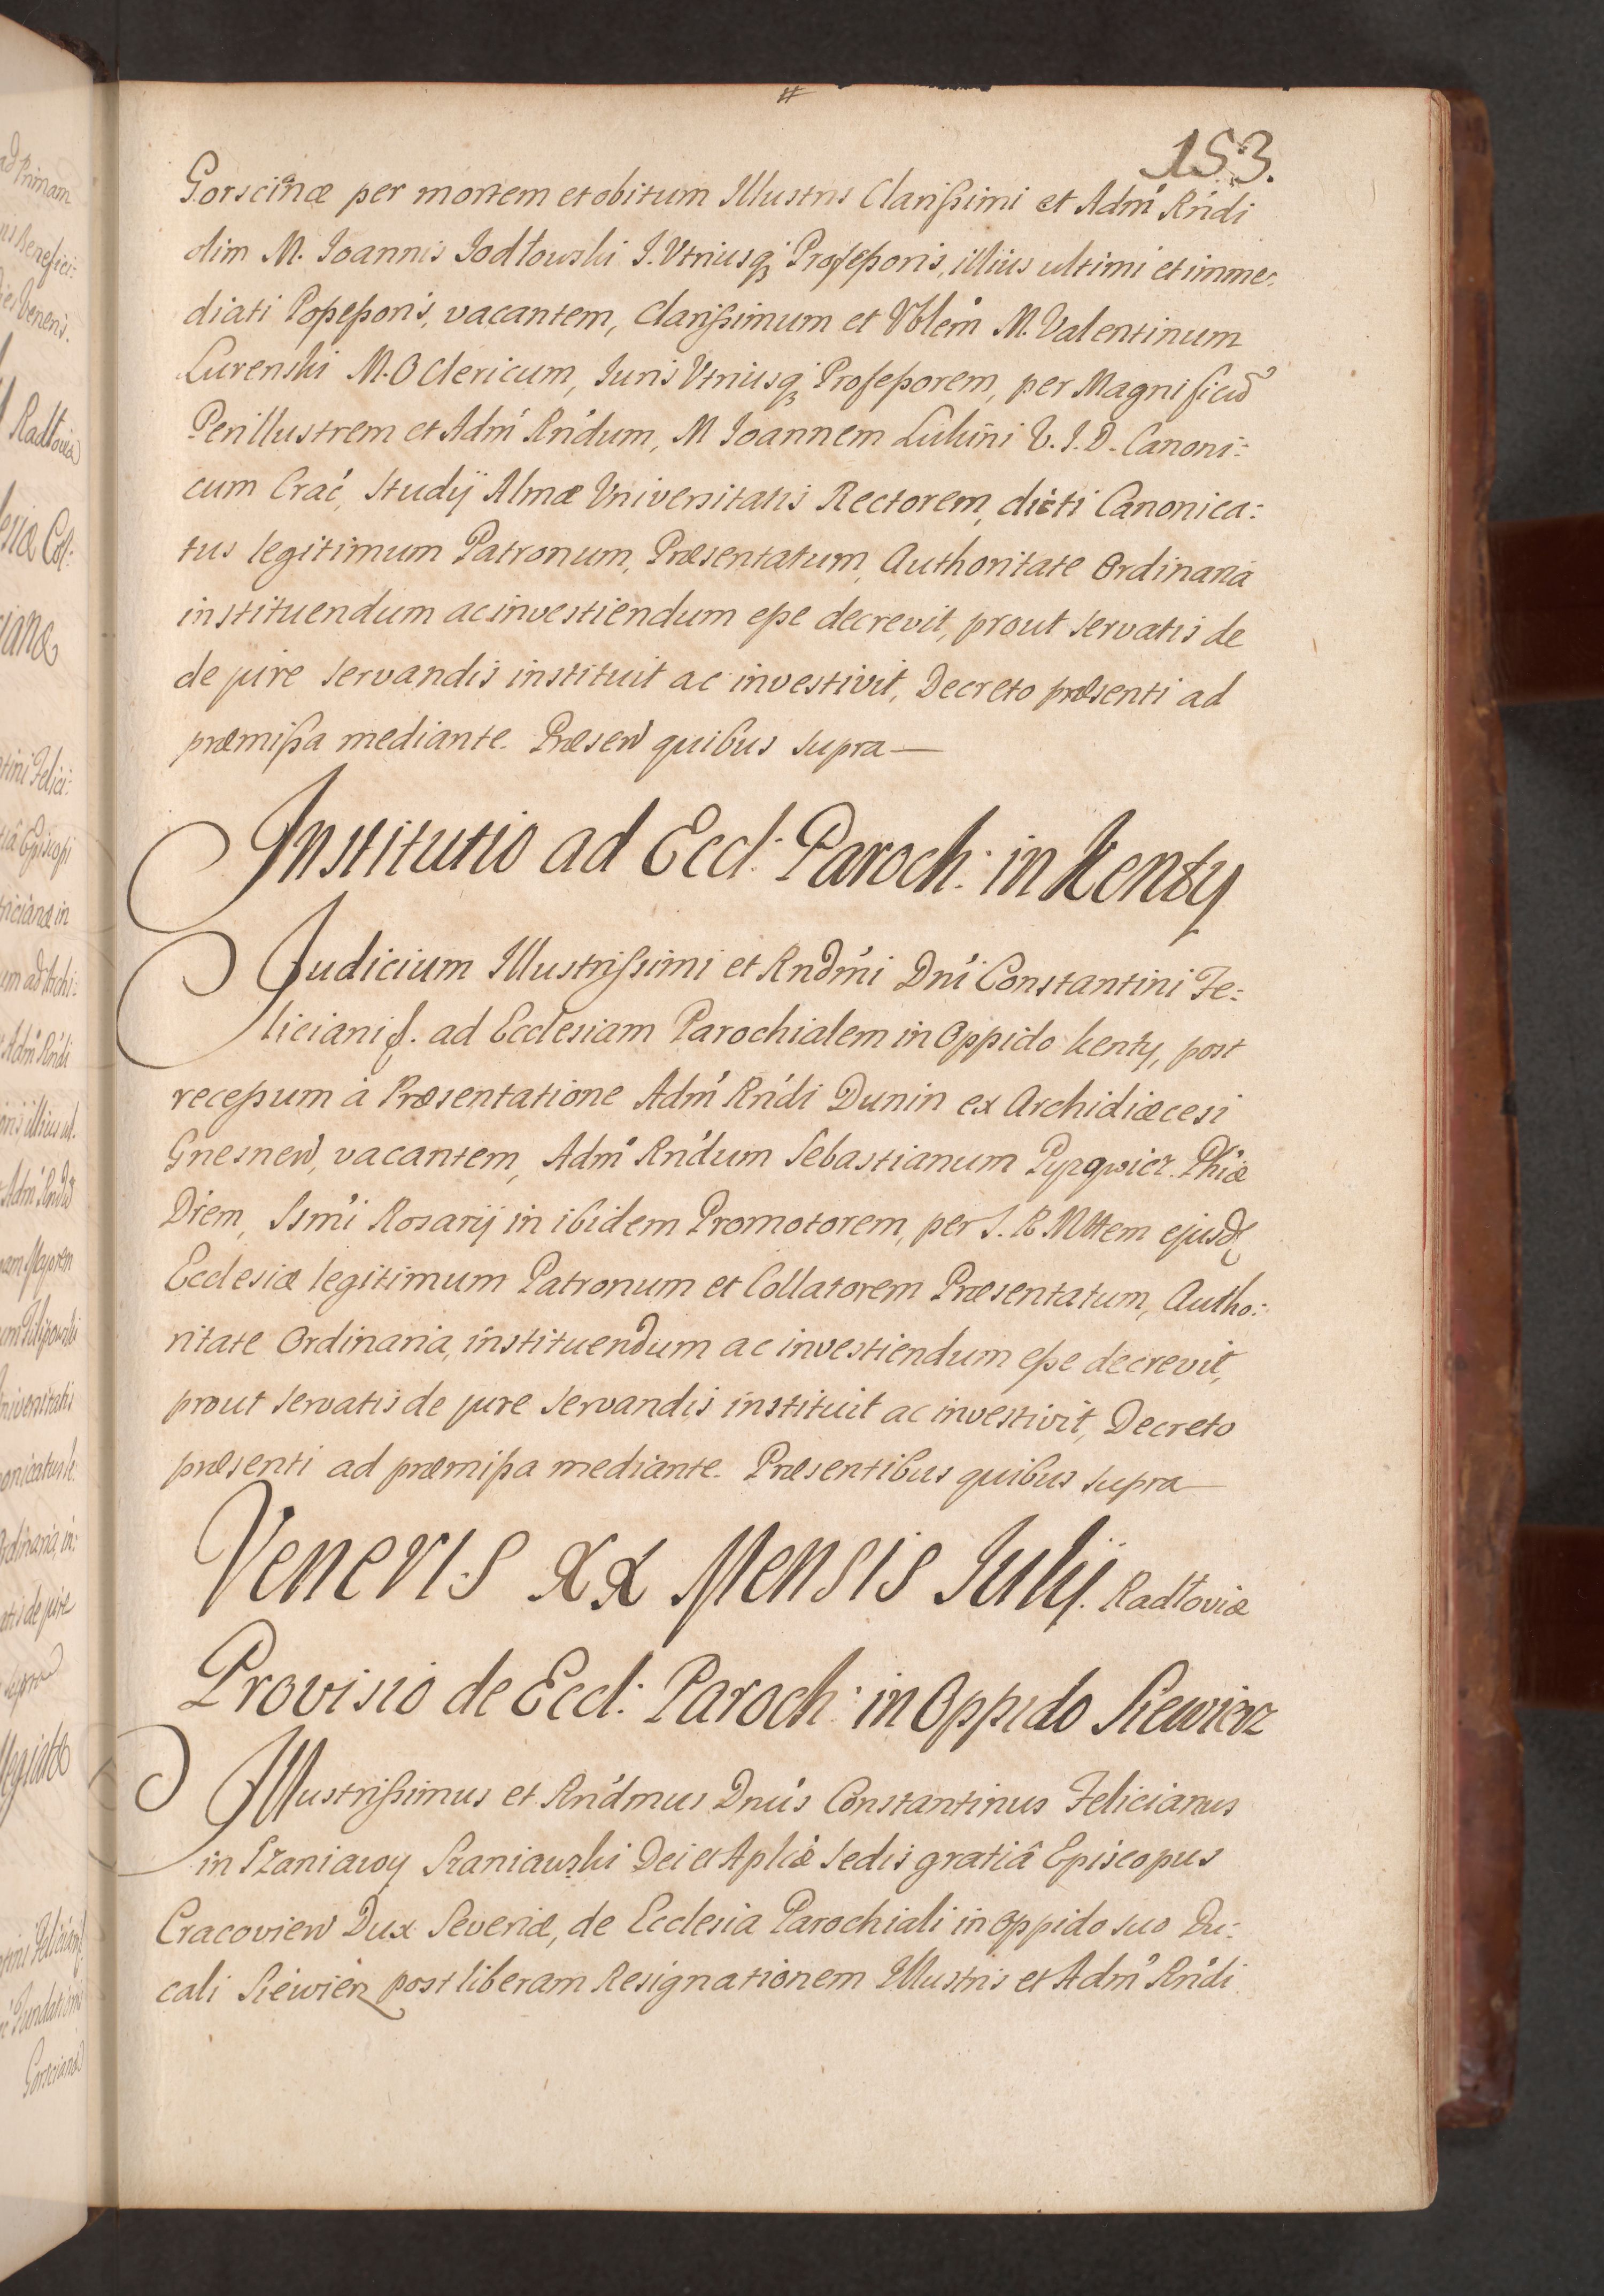 153.
Gorscinæ per mortem et obitum Illustris Clarißimi et Adm̃ Rńdi
olim M. Ioannis Jodłowski I. Vtriusq; Profeßoris, illius ultimi et imme-
diati Poßeßoris, vacantem, Clarißimum et Vblem̃ M. Valentinum
Lurenski M. O Clericum, Iuris Vtriusq; Profeßorem, per Magnificũ
Perillustrem et Adm̃ Rńdum, M Ioannem Lukini V. I. D. Canoni:
cum Crac̃, Studij Almæ Vniversitatis Rectorem, dicti Canonica:
tus legitimum Patronum, Præsentatum, Authoritate Ordinaria
instituendum ac investiendum eße decrevit, prout servatis de
de jure servandis instituit ac investivit, Decreto præsenti ad
præmißa mediante. Præsen̄ quibus supra —
Institutio ad Eccl: Paroch: in Kenty
Judicium Illustrißimi et Rndḿi Dńi Constantini Fe:
liciani &. ad Ecclesiam Parochialem in Oppido Kenty, post
receßum à Præsentatione Adm̃ Rńdi Dunin ex Archidiæcesi
Gnesnen̄, vacantem, Adm̃ Rńdum Sebastianum Pyrgowicz Phiæ
Drem, Ssm̃i Rosarij in ibidem Promotorem, per S. R. Mttem ejusd̃
Ecclesiæ legitimum Patronum et Collatorem Præsentatum, Autho:
ritate Ordinaria, instituendum ac investiendum eße decrevit,
prout servatis de jure servandis instituit ac investivit, Decreto
præsenti ad præmißa mediante. Præsentibus quibus supra —
Veneris XX Mensis Julij. Radłoviæ
Provisio de Eccl: Paroch: in Oppido Siewierz
Illustrißimus et Rńdmus Dnús Constantinus Felicianus
in Szaniawy Szaniawski Dei et Aplicæ Sedis gratiâ Episcopus
Cracovien̄ Dux Severiæ, de Ecclesia Parochiali in Oppido suo Du:
cali Siewierz post liberam Resignationem Illustris et Adm̃ Rńdi